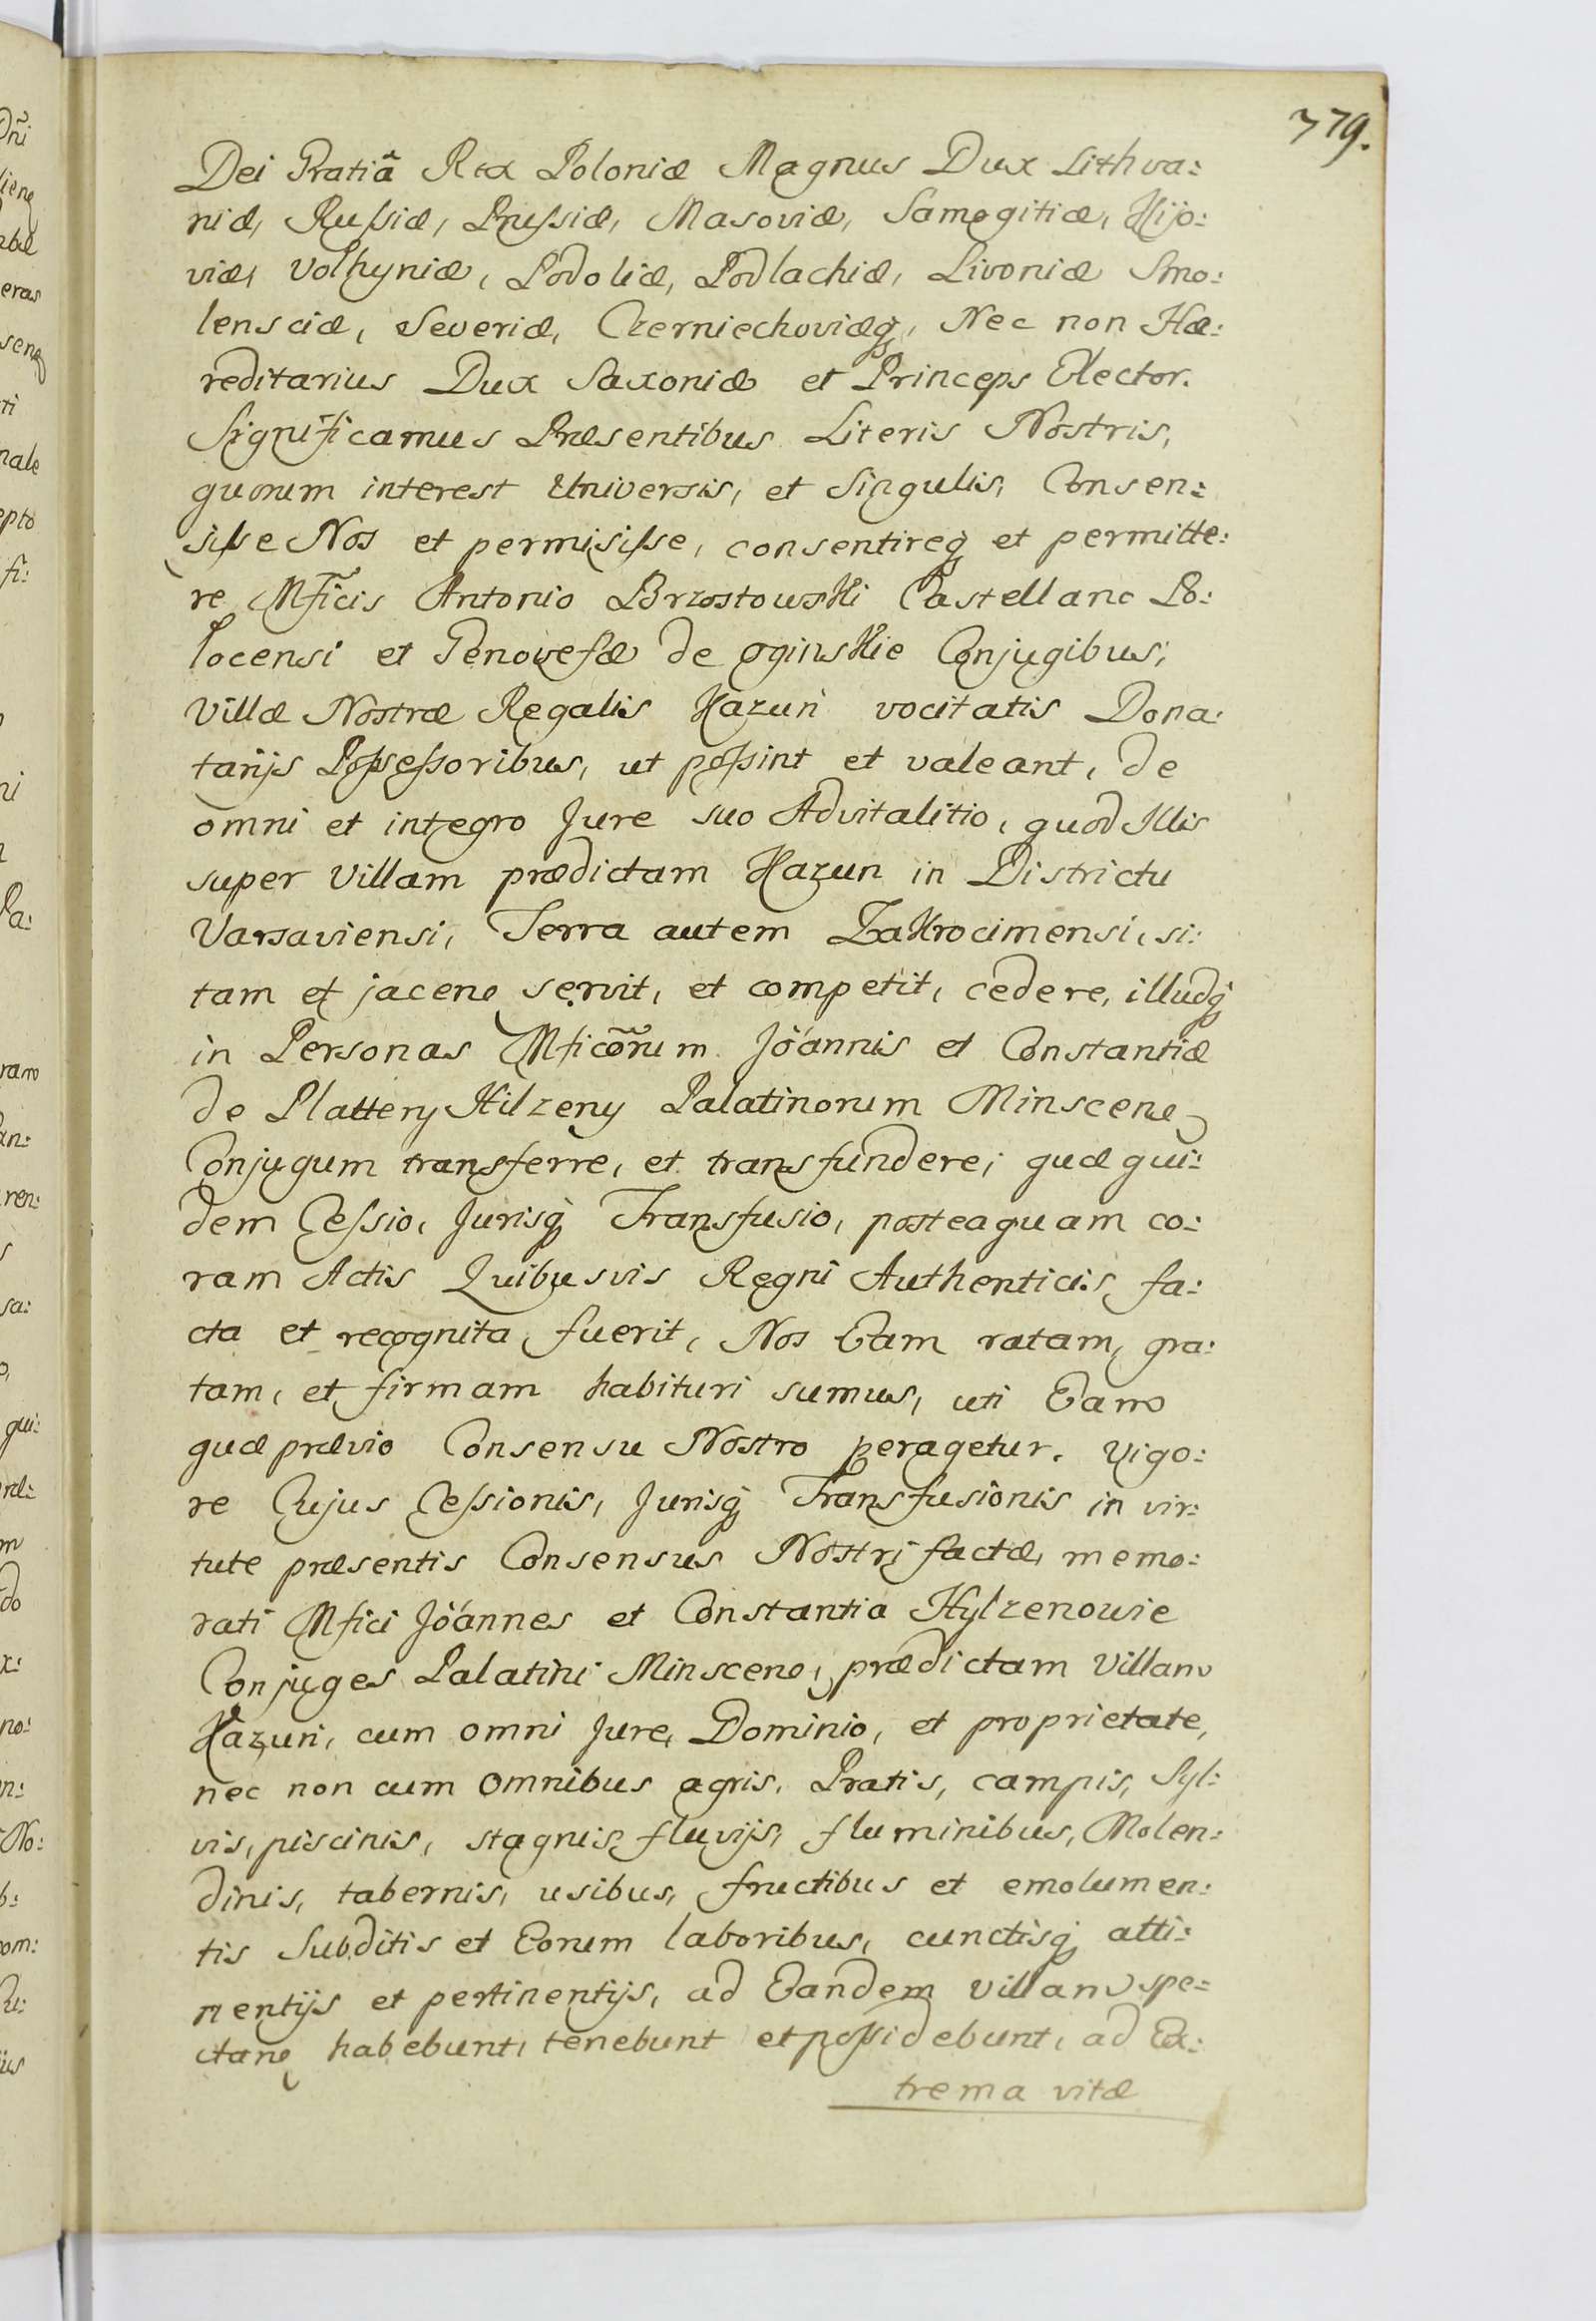 779.
Dei Gratiã Rex Poloniæ Magnus Dux Lithva:
niæ, Rußiæ, Prußiæ, Masoviæ, Samogitiæ, Kijo:
viæ, Volhyniæ, Podoliæ, Podlachiæ, Livoniæ Smo:
lensciæ, Severiæ, Czerniechoviæq̃, Nec non Hæ:
reditarius Dux Saxoniæ et Princeps Elector.
Significamus Præsentibus Literis Nostris,
quorum interest Universis, et Singulis, Consen:
siße Nos et permisiße, consentireq̃ et permitte:
re Mficis Antonio Brzostowski Castellano Po:
locensi et Genovefæ de Oginskie Conjugibus,
Villæ Nostræ Regalis Kazuń vocitatis Dona:
tarijs Poßeßoribus, ut poßint et valeant, de
omni et integro Jure suo Advitalitio, quod Illis
super Villam prædictam Kazun in Districtu
Varsaviensi, Terra autem Zakrocimensi, si:
tam et jacen̄ servit, et competit, cedere, illudq̃
in Personas Mficõrum Joánnis et Constantiæ
de Plattery Hilzeny Palatinorum Minscen̄
Conjugum transferre, et transfundere; quæ qui:
dem Ceßio, Jurisq̃ Transfusio, posteaquam co:
ram Actis Quibusvis Regni Authenticis, fa:
cta et recognita fuerit, Nos Eam ratam, gra:
tam, et firmam habituri sumus, uti Eam
quæ prævio Consensu Nostro peragetur. Vigo:
re Cujus Ceßionis, Jurisq̃ Transfusionis in vir:
tute præsentis Consensus Nostri factæ, memo:
rati Mfici Joánnes et Constantia Hylzenowie
Conjuges Palatini Minscen̄, prædictam Villam
Kazuń, cum omni Jure, Dominio, et proprietate,
nec non cum omnibus agris, Pratis, campis, Syl:
vis, piscinis, stagnis, fluvijs, fluminibus, Molen:
dinis, tabernis, usibus, fructibus et emolumen:
tis Subditis et Eorum laboribus, cunctisq̃ atti:
nentijs et pertinentijs, ad Eandem Villam spe:
ctan̄ habebunt, tenebunt et poßidebunt, ad Ex:
trema vitæ